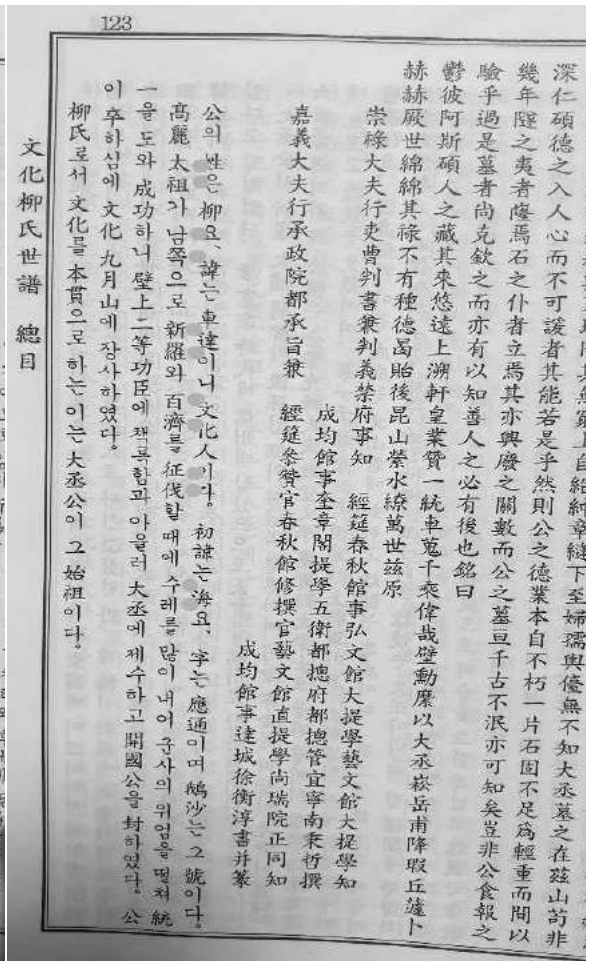 123
深仁碩德之入人心而不可諼者其能若是乎然則公之德業本自不朽一片石固不足爲輕重而間以
幾年隧之夷者隆焉石之仆者立焉其亦興廢之關數而公之墓亘千古不泯亦可知矣豈非公食報之
驗乎過是墓者尚克欽之而亦有以知善人之必有後也銘曰
鬱彼阿斯碩人之藏其來悠遠上溯軒皇業贊一統車蒐千乘偉哉壁勳縻以大丞崧岳甫降瑕丘蘧卜
赫赫厥世綿綿其祿不有種德曷貽後昆山縈水繚萬世玆原
崇祿大夫行吏曹判書兼判義禁府事知 經筵春秋館事弘文館大提學藝文館大提學知
成均館事奎章閣提學五衛都摠府都摠管宜寧南秉哲撰
嘉義大夫行承政院都承旨兼 經筵參贊官春秋館修撰官藝文館直提學尚瑞院正同知
成均館事達城徐衡淳書并篆
公의 姓은 柳요、諱는 車達이니 文化人이다。初諱는 海요、字는 應通이며 鵝沙는 그 號이다。
高麗 太祖가 남쪽으로 新羅와 百濟를 征伐할 때에 수레를 많이 내어 군사의 위엄을 떨쳐 統
一을 도와 成功하니 壁上二等功臣에 책록함과 아울러 大丞에 제수하고 開國公을 封하였다。公
이 주하심에 文化 九月山에 장사하였다。
柳氏로서 文化를 本貫으로 하는 이는 大丞公이 그 始祖이다。
文化柳氏世譜 總目